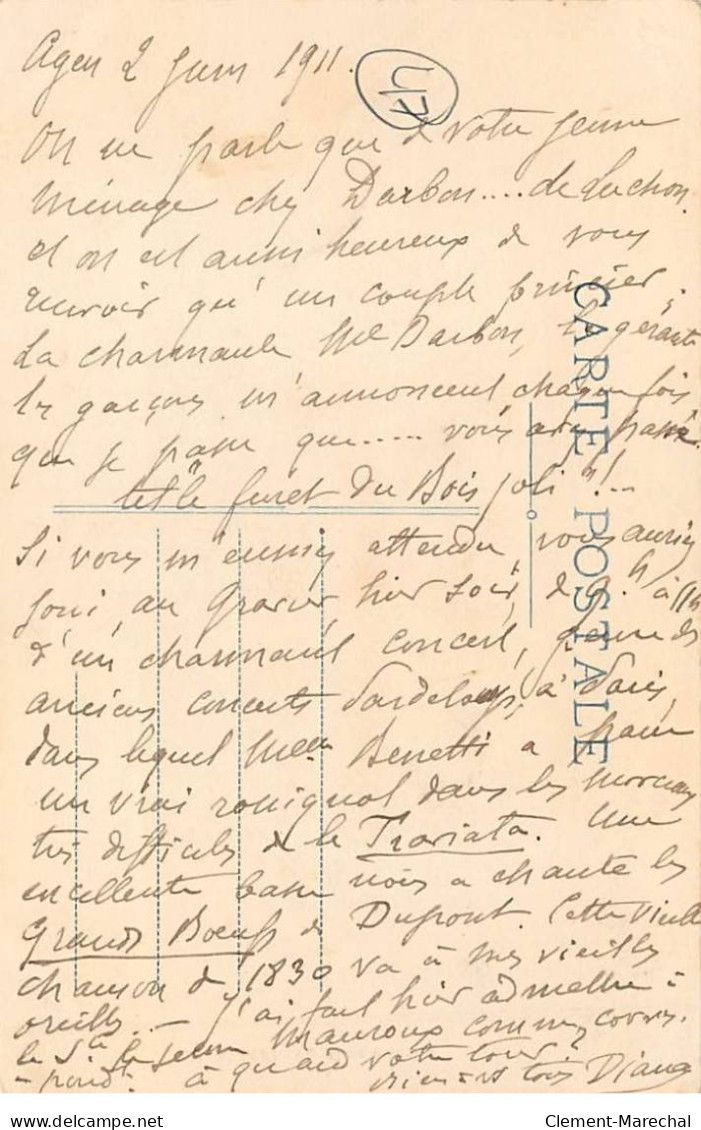 Agen 2 Juin 1911.
47
On ne parle que de votre jeune
ménage chez Darbon.... de Luchon.
et on est aussi heureux de vous
revoir qu'un couple princier.
La charmante Mlle Darbon, la gérante
les garçons m'annoncent chaque fois
que je passe que..... vous avez passé.
"le furet du Bois joli"!...
Si vous m'eussiez attendu vous auriez
joui, au Gravier, hier soir, de 9h à 11h
d'un charmant concert, genre des
anciens concerts Pasdeloup, à Paris,
dans lequel Melle Benetti a
un vrai rossignol dans les morceaux
très difficiles de la Traviata. Une
excellente basse nous a chanté les
Grands Boeufs de Dupont. Cette vieille
chanson de 1830 va à mes vieilles
oreilles. — J'ai fait hier admettre
le Sta le jeune Mauroux comme corres-
-pondt. à quand votre tour?
tous
CARTE POSTALE
delcampe.net
Clement-Marechal